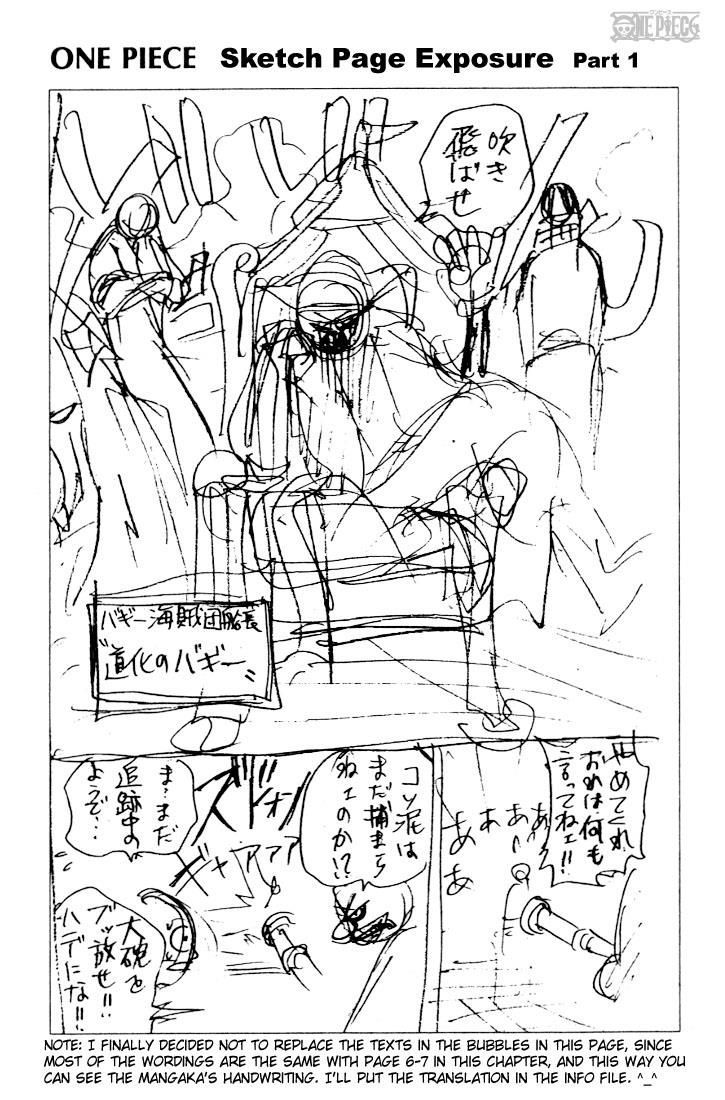 ワンピース
ONE PIECE
ONE PIECE Sketch Page Exposure Part 1
吹き
飛ばせ
バギー海賊団船長
"道化のバギー"
やめてくれ
おれは何も
言ってねェ!!
あああああ
コソ泥は
まだ捕まら
ねェのか!?
ズドォン
ギャアアア
ま…まだ
追跡中の
ようで…
大砲を
ブッ放せ!!
ハデにな!!
NOTE: I FINALLY DECIDED NOT TO REPLACE THE TEXTS IN THE BUBBLES IN THIS PAGE, SINCE
MOST OF THE WORDINGS ARE THE SAME WITH PAGE 6-7 IN THIS CHAPTER, AND THIS WAY YOU
CAN SEE THE MANGAKA'S HANDWRITING. I'LL PUT THE TRANSLATION IN THE INFO FILE. ^_^